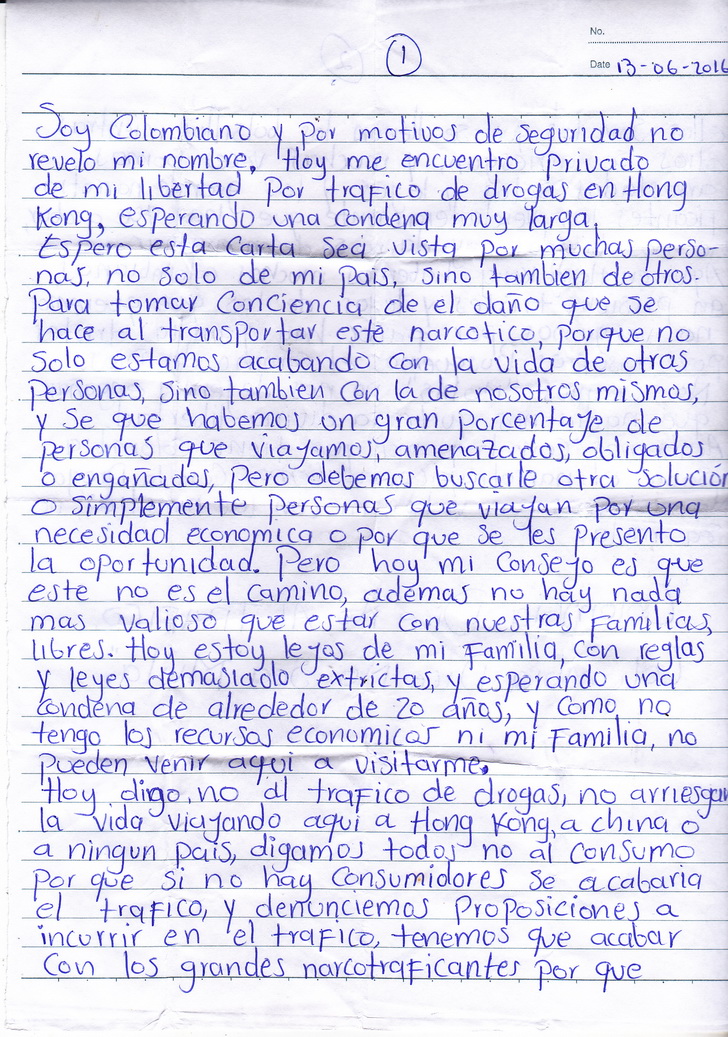 1
No.
Date 13-06-2016
Soy Colombiano y por motivos de seguridad no
revelo mi nombre, Hoy me encuentro privado
de mi libertad por trafico de drogas en Hong
Kong, esperando una condena muy larga.
Espero esta carta sea vista por muchas perso-
nas, no solo de mi pais, sino tambien de otros.
Para tomar conciencia de el daño que se
hace al transportar este narcotico, porque no
solo estamos acabando con la vida de otras
personas, sino tambien con la de nosotros mismos,
y se que habemos un gran porcentaje de
personas que viajamos, amenazados, obligados
o engañados, pero debemos buscarle otra solución
o simplemente personas que viajan por una
necesidad economica o por que se les presento
la oportunidad. Pero hoy mi consejo es que
este no es el camino, ademas no hay nada
mas valioso que estar con nuestras familias,
libres. Hoy estoy lejos de mi familia, con reglas
y leyes demasiado extrictas, y esperando una
condena de alrededor de 20 años, y como no
tengo los recursos economicos ni mi familia, no
pueden venir aqui a visitarme.
Hoy digo, no al trafico de drogas, no arriesgar
la vida viajando aqui a Hong Kong, a china o
a ningun pais, digamos todos no al consumo
por que si no hay consumidores se acabaria
el trafico, y denunciemos proposiciones a
incurrir en el trafico, tenemos que acabar
con los grandes narcotraficantes por que